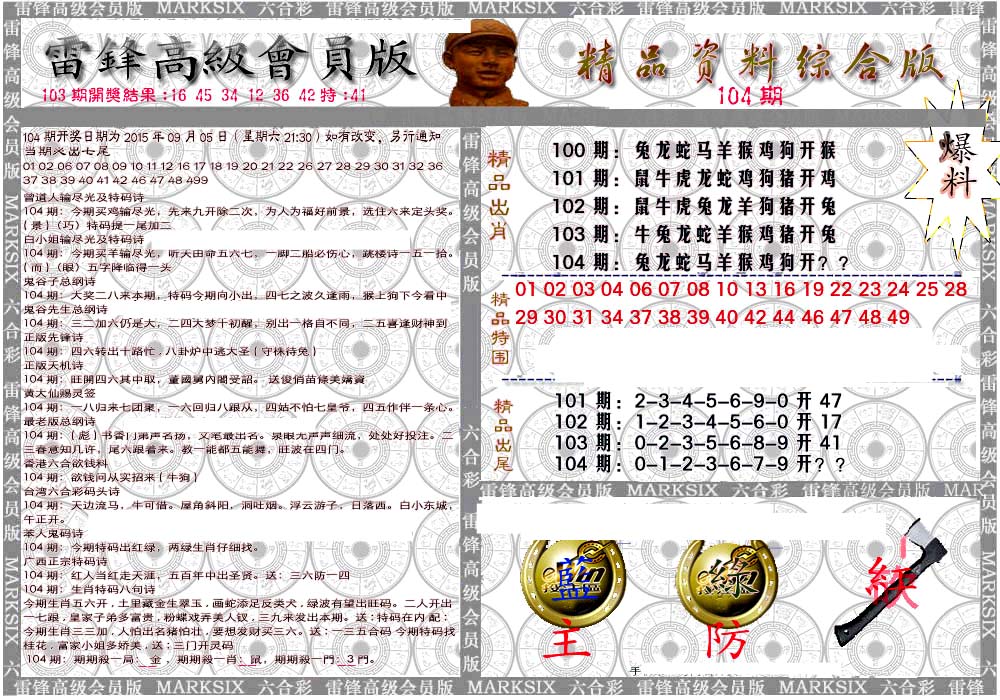 雷锋高级会员版 MARKSIX 六合彩 雷锋高级会员版 MARKSIX 六合彩 雷锋高级会员版 MARKSIX 六合彩 雷锋
雷鋒高級會員版
精品资料综合版
103期開獎結果:16 45 34 12 36 42特:41
104期
爆料
104期开奖日期为2015年09月05日（星期六21:30）如有改变，另行通知
当期炎出七尾
01 02 06 07 08 09 10 11 12 16 17 18 19 20 21 22 26 27 28 29 30 31 32 36
37 38 39 40 41 42 46 47 48 499
曾道人输尽光及特码诗
104期：今期买鸡输尽光，先来九开除二次，为人为福好前景，选住六来定头奖。
{景}（巧）特码提一尾加二
白小姐输尽光及特码诗
104期：今期买羊输尽光，听天由命五六七，一脚二船必伤心，跳楼诗一五一拾。
{而}（眼）五字降临得一头
鬼谷子总纲诗
104期：大奖二八来本期，特码今期向小出，四七之波久逢雨，猴上狗下今看中
鬼谷先生总纲诗
104期：三二加六仍是大，二四大梦十初醒，别出一格自不同，二五喜逢财神到
正版先锋诗
104期：四六转出十路忙．八卦炉中逃大圣{守株待兔}
正版天机诗
104期：旺開四六其中取，董國舅內閣受詔。送俊俏苗條美嬌資
黄大仙赐灵签
104期：一八归来七团聚，一六回归八跟从，四姑不怕七皇爷，四五作伴一条心。
最老版总纲诗
104期：{彪}书香门第声名扬，文笔最出名。泉眼无声声细流，处处好投注。二
三春意知几许，尾六跟着来。教一能都五能舞，旺波在四门。
香港六合欲钱料
104期：欲钱问从实招来{牛狗}
台湾六合彩码头诗
104期：天边流马，牛可借。屋角斜阳，洞吐烟。浮云游子，日落西。白小东城，
午正开。
苯人鬼码诗
104期：今期特码出红绿，两绿生肖仔细找。
广西正宗特码诗
104期：红人当红走天涯，五百年中出圣贤。送：三六防一四
104期：生肖特码八句诗
今期生肖五六开，土里藏金生翠玉．画蛇添足反类犬．绿波有望出旺码。二人开出
一七跟．皇家子弟多富贵．粉蝶戏弄美人钗．三九来发出本期。送：特码在内 配：
今期生肖三三加．人怕出名猪怕壮．要想发财买三六。送：一三五合码 今期特码找
桂花．富家小姐多娇美．送：三门开灵码
104期：期期殺一局：金，期期殺一肖：鼠，期期殺一門：3門。
精品出肖
100期：兔龙蛇马羊猴鸡狗开猴
101期：鼠牛虎龙蛇鸡狗猪开鸡
102期：鼠牛虎兔龙羊狗猪开兔
103期：牛兔龙蛇羊猴鸡猪开兔
104期：兔龙蛇马羊猴鸡狗开？？
精品特围
01 02 03 04 06 07 08 10 13 16 19 22 23 24 25 28
29 30 31 34 37 38 39 40 42 44 46 47 48 49
精品出尾
101期：2-3-4-5-6-9-0开47
102期：1-2-3-4-5-6-0开17
103期：0-2-3-5-6-8-9开41
104期：0-1-2-3-6-7-9开？？
雷锋高级会员版 MARKSIX 六合彩 雷锋高级会员版 MAR
藍
綠
主
防
手
雷锋高级会员版 MARKSIX 六合彩 雷锋高级会员版 MARKSIX 六合彩 雷锋高级会员版 MARKSIX 六合彩 雷锋